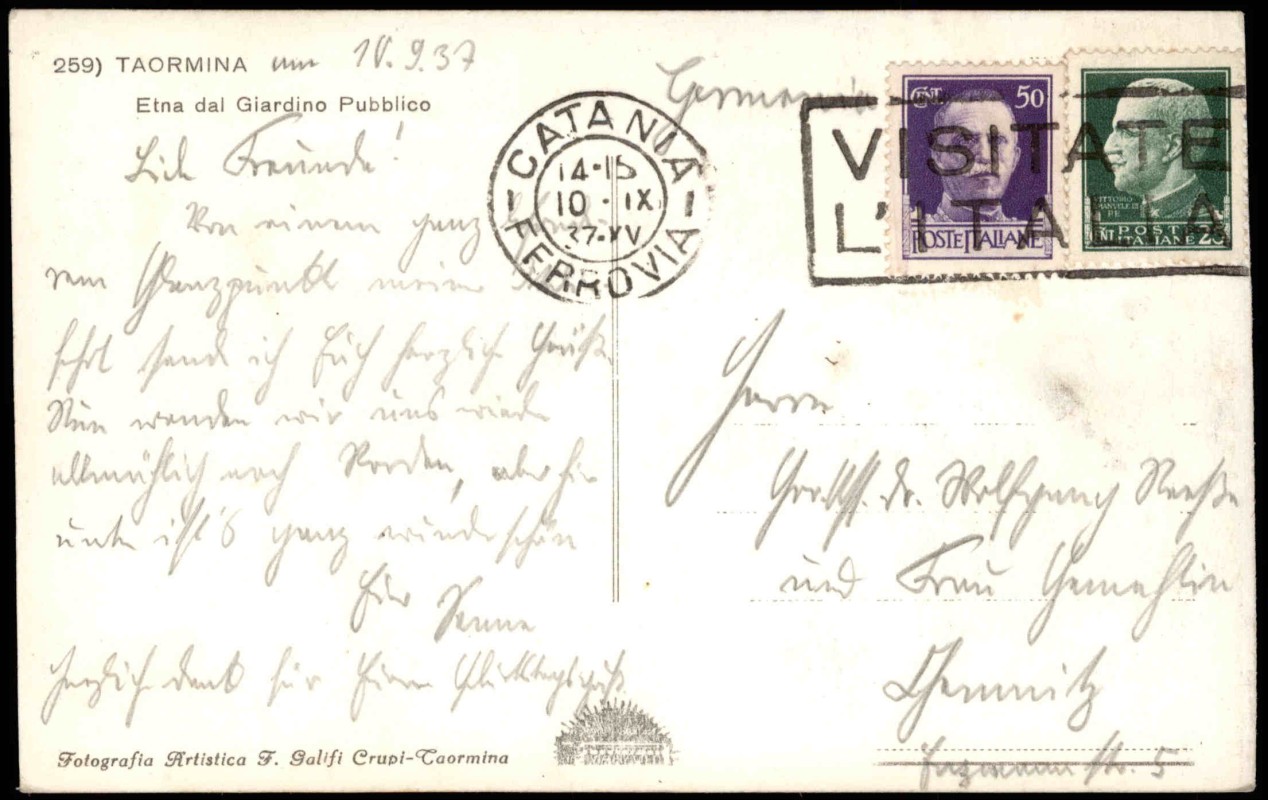 259) TAORMINA am 10.9.37
Etna dal Giardino Pubblico
Lieb Freunde!
Von einem ganz
rem Glanzpunkt meiner
fahrt sende ich Euch herzliche Grüße
Nun wenden wir uns wieder
allmählich nach Norden, aber hier
unten ist's ganz wunderschön
Euer
Herzlich dank für Euren
Fotografia Artistica F. Galifi Crupi-Taormina
CATANIA
14-15
10 - IX
37-XV
FERROVIA
Germania
VISITATE
L'ITALIA
CENT 50
POSTE ITALIANE
VITTORIO EMANUELE III RE
CENT POSTE ITALIANE 25
Herrn
Dr. Wolfgang
und Frau Gemahlin
Chemnitz
str. 5